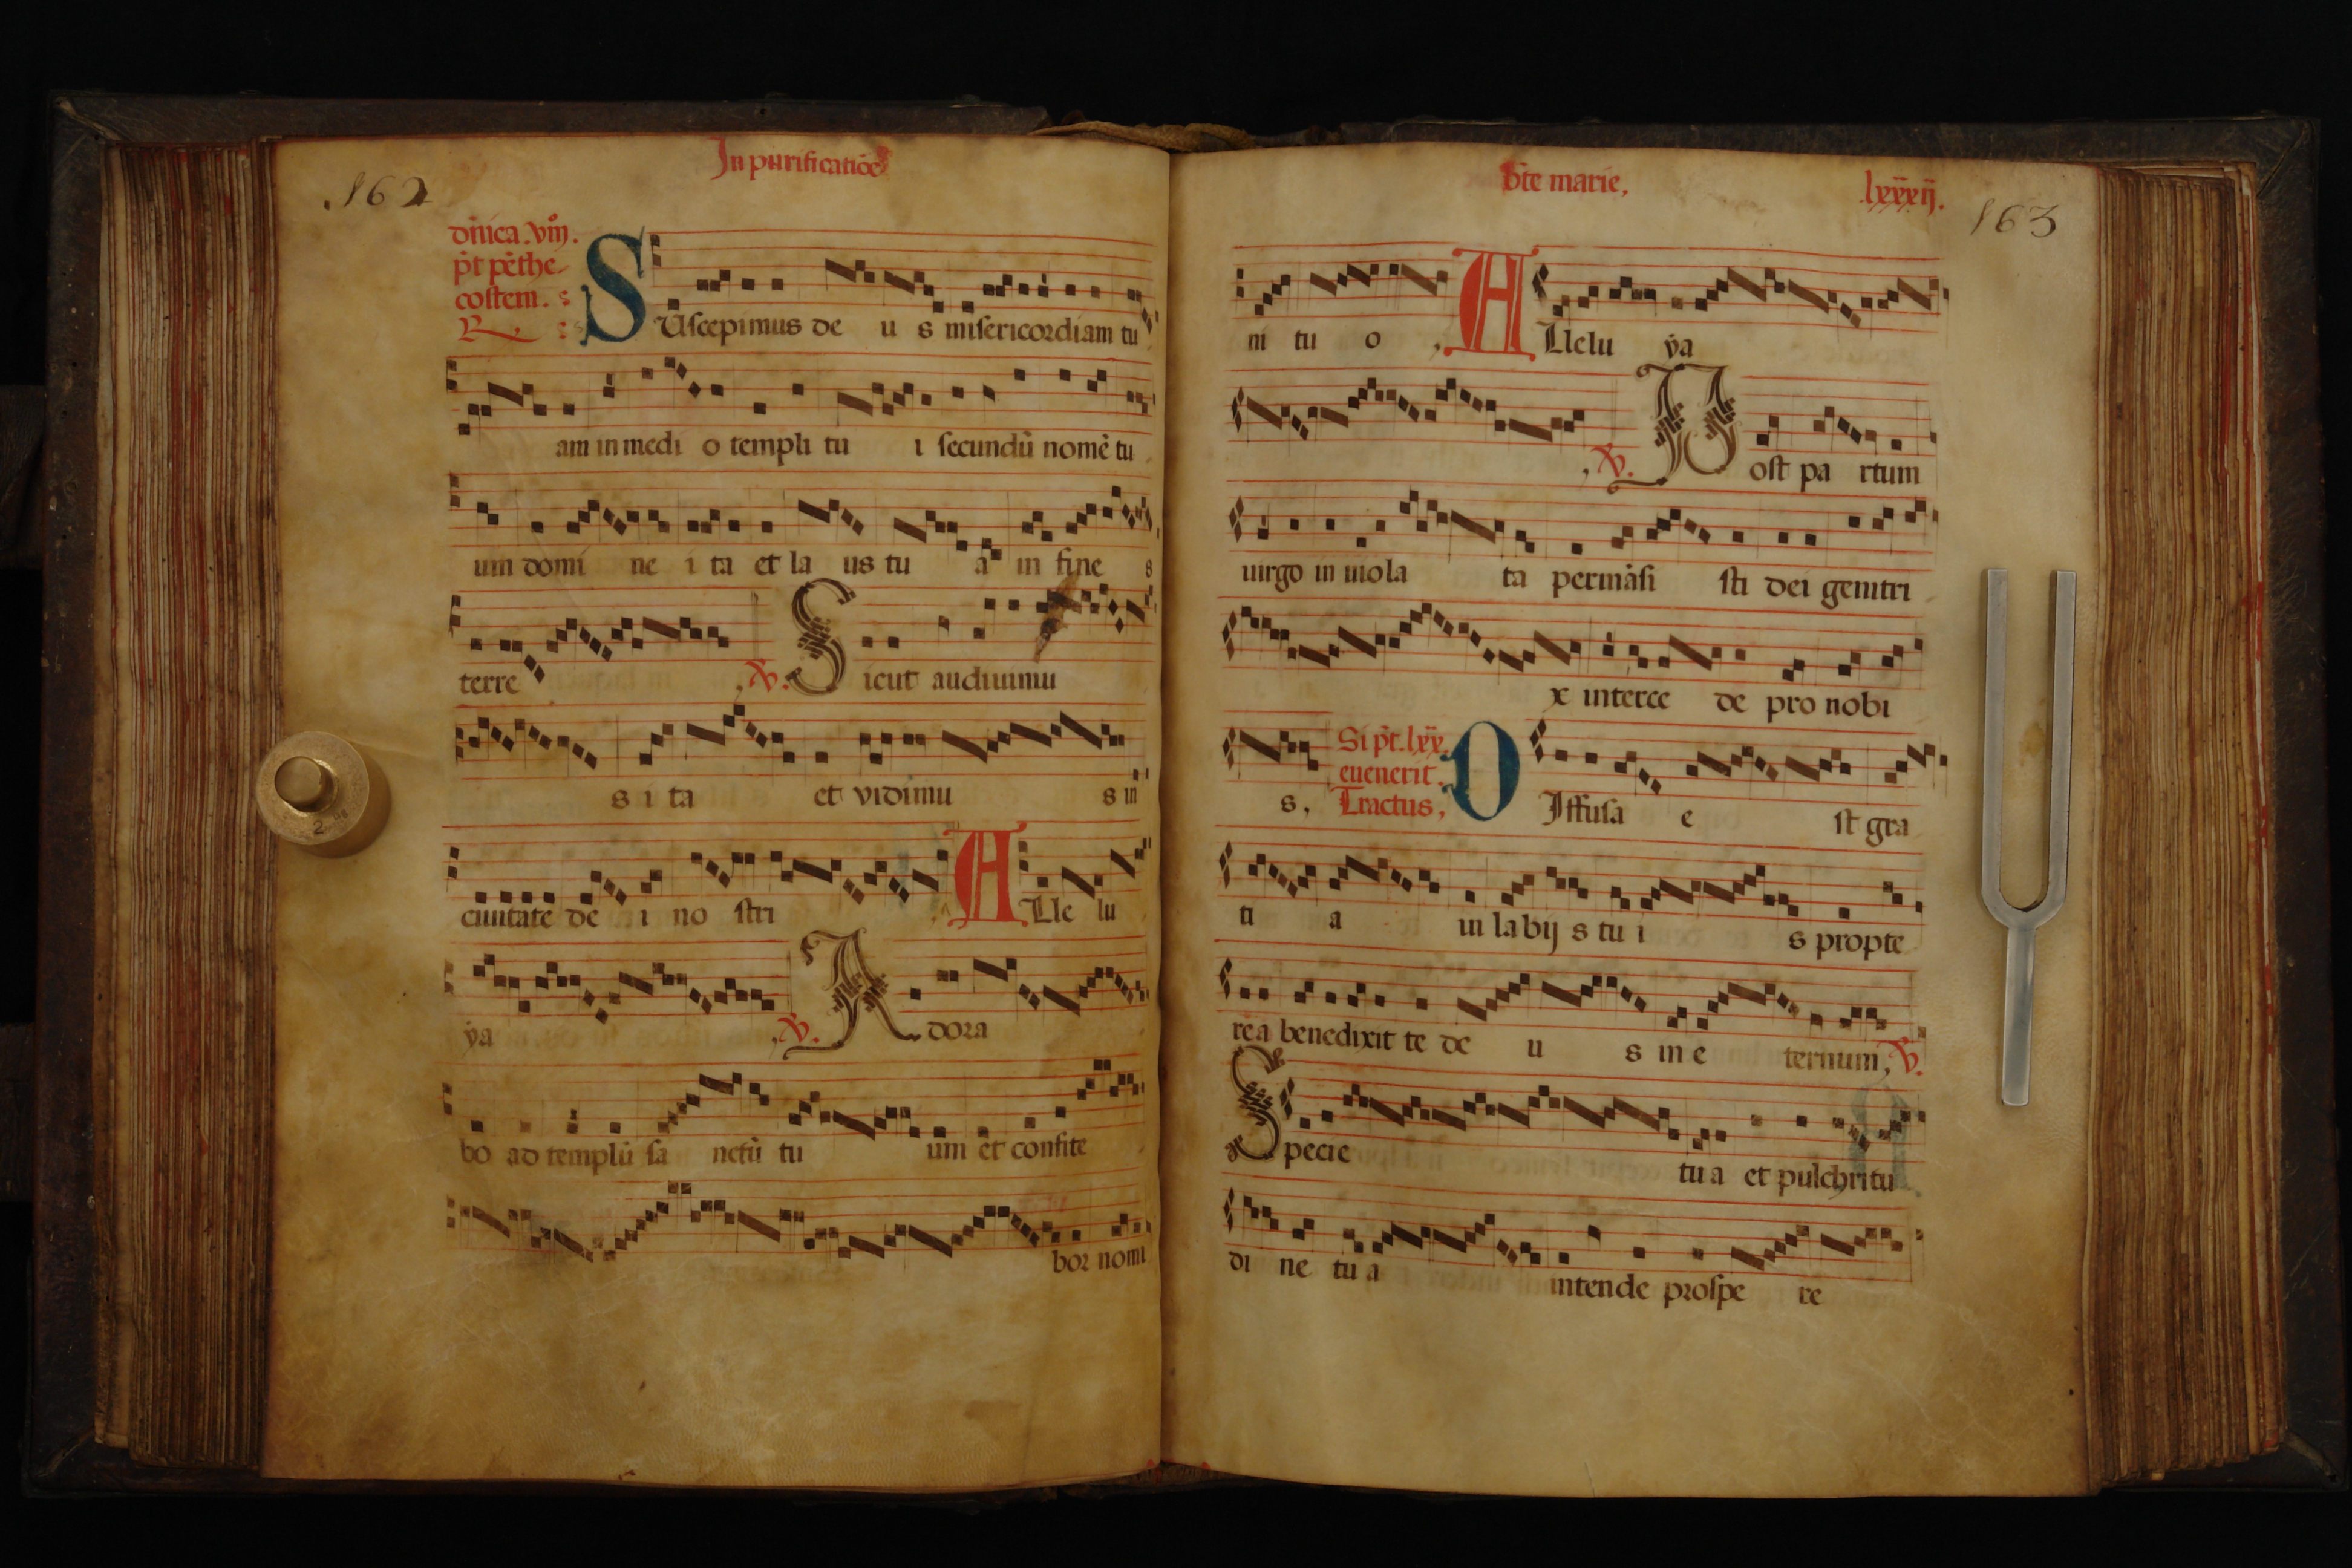 In purificatiōe
.162
dñica .viij.
p̄t pēthe
costem.
R.
SUscepimus de u s misericordiam tu
am in medi o templi tu i secundū nomē tu
um domi ne i ta et la us tu a in fine s
terre ℣. Sicut audiuimu
s i ta et vidimu s in
ciuitate de i no stri ALle lu
ya ℣. Adora
bo ad templū sa nctū tu um et confite
bor nomi
bt̄e marie,
lxxxij.
163
ni tu o, ALlelu ya
, ℣. Post pa rtum
uirgo in uiola ta permāsi sti dei genitri
x interce de pro nobi
s, Si p̄t .lxx.
euenerit.
Tractus, DIffusa e st gra
ti a in labij s tu i s propte
rea benedixit te de u s in e ternum, ℣.
Specie tu a et pulchritu
di ne tu a intende prospe re
2